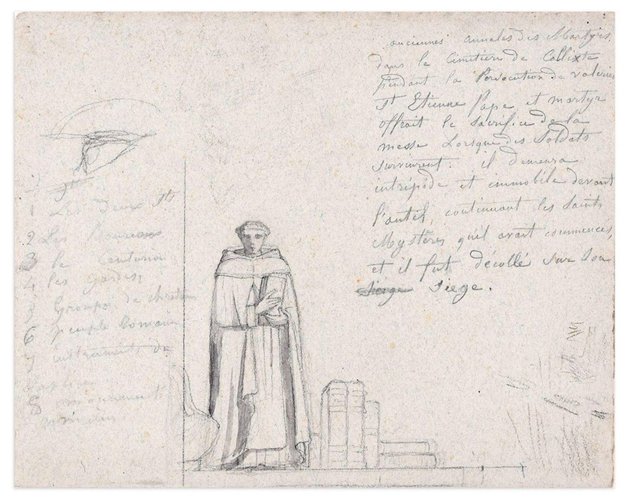 anciennes annales des Martyrs
dans le Cimetière de Callixte
pendant la Persecution de Valerien
St Etienne Pape et martyr
offrait le sacrifice de la
messe Lorsque des Soldats
survinrent. il demeura
intrépide et immobile devant
l'autel, continuant les saints
Mystères qu'il avait commencés,
et il fut décollé sur son
siege.
1 Les Deux Sts
2 Les
3 le Centurion
4 les gardes
5 Groupe de chretiens
6 peuple Romain
7 instruments de
8